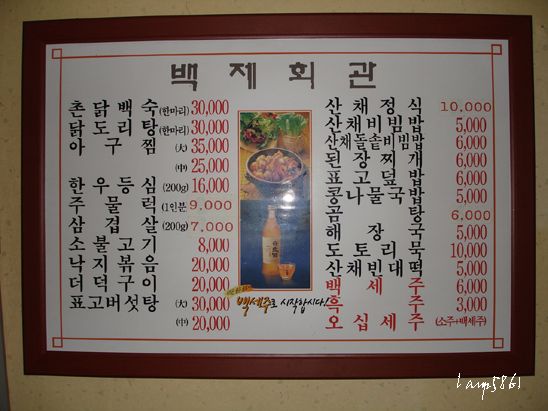 백제회관
촌닭백숙 (한마리) 30,000
닭도리탕 (한마리) 30,000
아구찜 (大) 35,000
(中) 25,000
한우등심 (200g) 16,000
주물럭 (1인분) 9,000
삼겹살 (200g) 7,000
소불고기 8,000
낙지볶음 20,000
더덕구이 20,000
표고버섯탕 (大) 30,000
(中) 20,000
백세주로 시작합시다!
산채정식 10,000
산채비빔밥 5,000
산채돌솥비빔밥 6,000
된장찌개 5,000
표고덮밥 6,000
콩나물국밥 5,000
곰탕 6,000
해장국 5,000
도토리묵 10,000
산채빈대떡 5,000
백세주 6,000
흑주 3,000
오십세주 (소주+백세주)
lamp5861